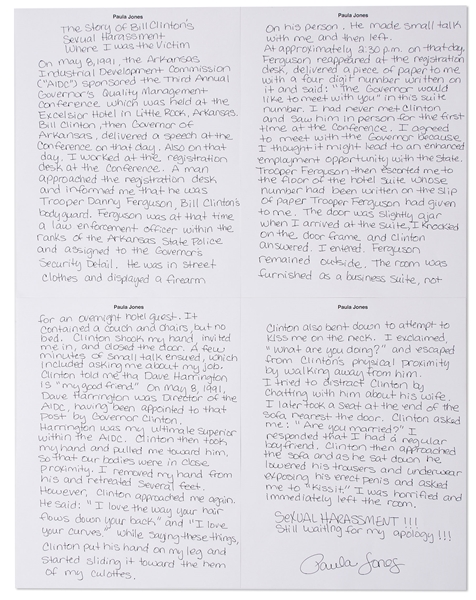 Paula Jones
The Story of Bill Clinton's
Sexual Harassment
Where I was the Victim
On May 8, 1991, the Arkansas
Industrial Development Commission
("AIDC") sponsored the Third Annual
Governor's Quality Management
Conference which was held at the
Excelsior Hotel in Little Rock, Arkansas.
Bill Clinton, then Governor of
Arkansas, delivered a speech at the
Conference on that day. Also on that
day, I worked at the registration
desk at the Conference. A man
approached the registration desk
and informed me that he was
Trooper Danny Ferguson, Bill Clinton's
bodyguard. Ferguson was at that time
a law enforcement officer within the
ranks of the Arkansas State Police
and assigned to the Governor's
Security Detail. He was in street
clothes and displayed a firearm
Paula Jones
on his person. He made small talk
with me and then left.
At approximately 2:30 p.m. on that day,
Ferguson reappeared at the registration
desk, delivered a piece of paper to me
with a four digit number written on
it and said: "The Governor would
like to meet with you" in this suite
number. I had never met Clinton
and saw him in person for the first
time at the Conference. I agreed
to meet with the Governor because
I thought it might lead to an enhanced
employment opportunity with the State.
Trooper Ferguson then escorted me to
the floor of the hotel suite whose
number had been written on the slip
of paper Trooper Ferguson had given
to me. The door was slightly ajar
when I arrived at the suite, I knocked
on the door frame and Clinton
answered. I entered. Ferguson
remained outside. The room was
furnished as a business suite, not
Paula Jones
for an overnight hotel guest. It
contained a couch and chairs, but no
bed. Clinton shook my hand, invited
me in, and closed the door. A few
minutes of small talk ensued, which
included asking me about my job.
Clinton told me that Dave Harrington
is "my good friend." On May 8, 1991,
Dave Harrington was Director of the
AIDC, having been appointed to that
Post by Governor Clinton.
Harrington was my ultimate superior
within the AIDC. Clinton then took
my hand and pulled me toward him,
so that our bodies were in close
proximity. I removed my hand from
his and retreated several feet.
However, Clinton approached me again.
He said: "I love the way your hair
flows down your back" and "I love
your curves" while saying these things,
Clinton put his hand on my leg and
started sliding it toward the hem
of my culottes.
Paula Jones
Clinton also bent down to attempt to
kiss me on the neck. I exclaimed,
"what are you doing?" and escaped
from Clinton's physical proximity
by walking away from him.
I tried to distract Clinton by
chatting with him about his wife.
I later took a seat at the end of the
sofa nearest the door. Clinton asked
me: "Are you married?" I
responded that I had a regular
boyfriend. Clinton then approached
the sofa and as he sat down he
lowered his trousers and underwear
exposing his erect penis and asked
me to "kiss it." I was horrified and
immediately left the room.
SEXUAL HARASSMENT !!!
Still waiting for my apology !!!
Paula Jones